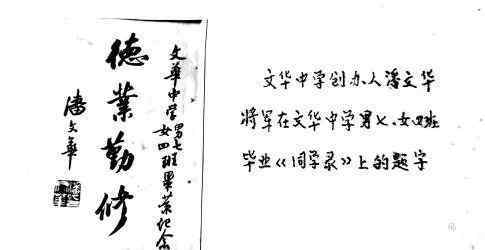 文华中学男七女四班毕业纪念
德業勤修
潘文華
文华中学创办人潘文华
将军在文华中学男七、女四班
毕业《同学录》上的题字